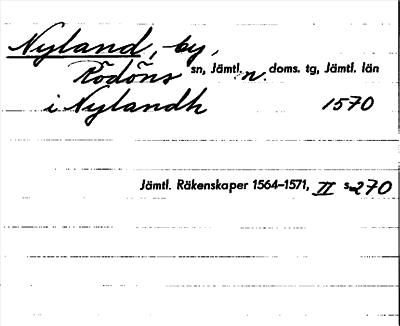 Nyland, by,
Rödöns sn, Jämtl. n. doms. tg, Jämtl. län
i Nylandh 1570
Jämtl. Räkenskaper 1564–1571, II s. 270